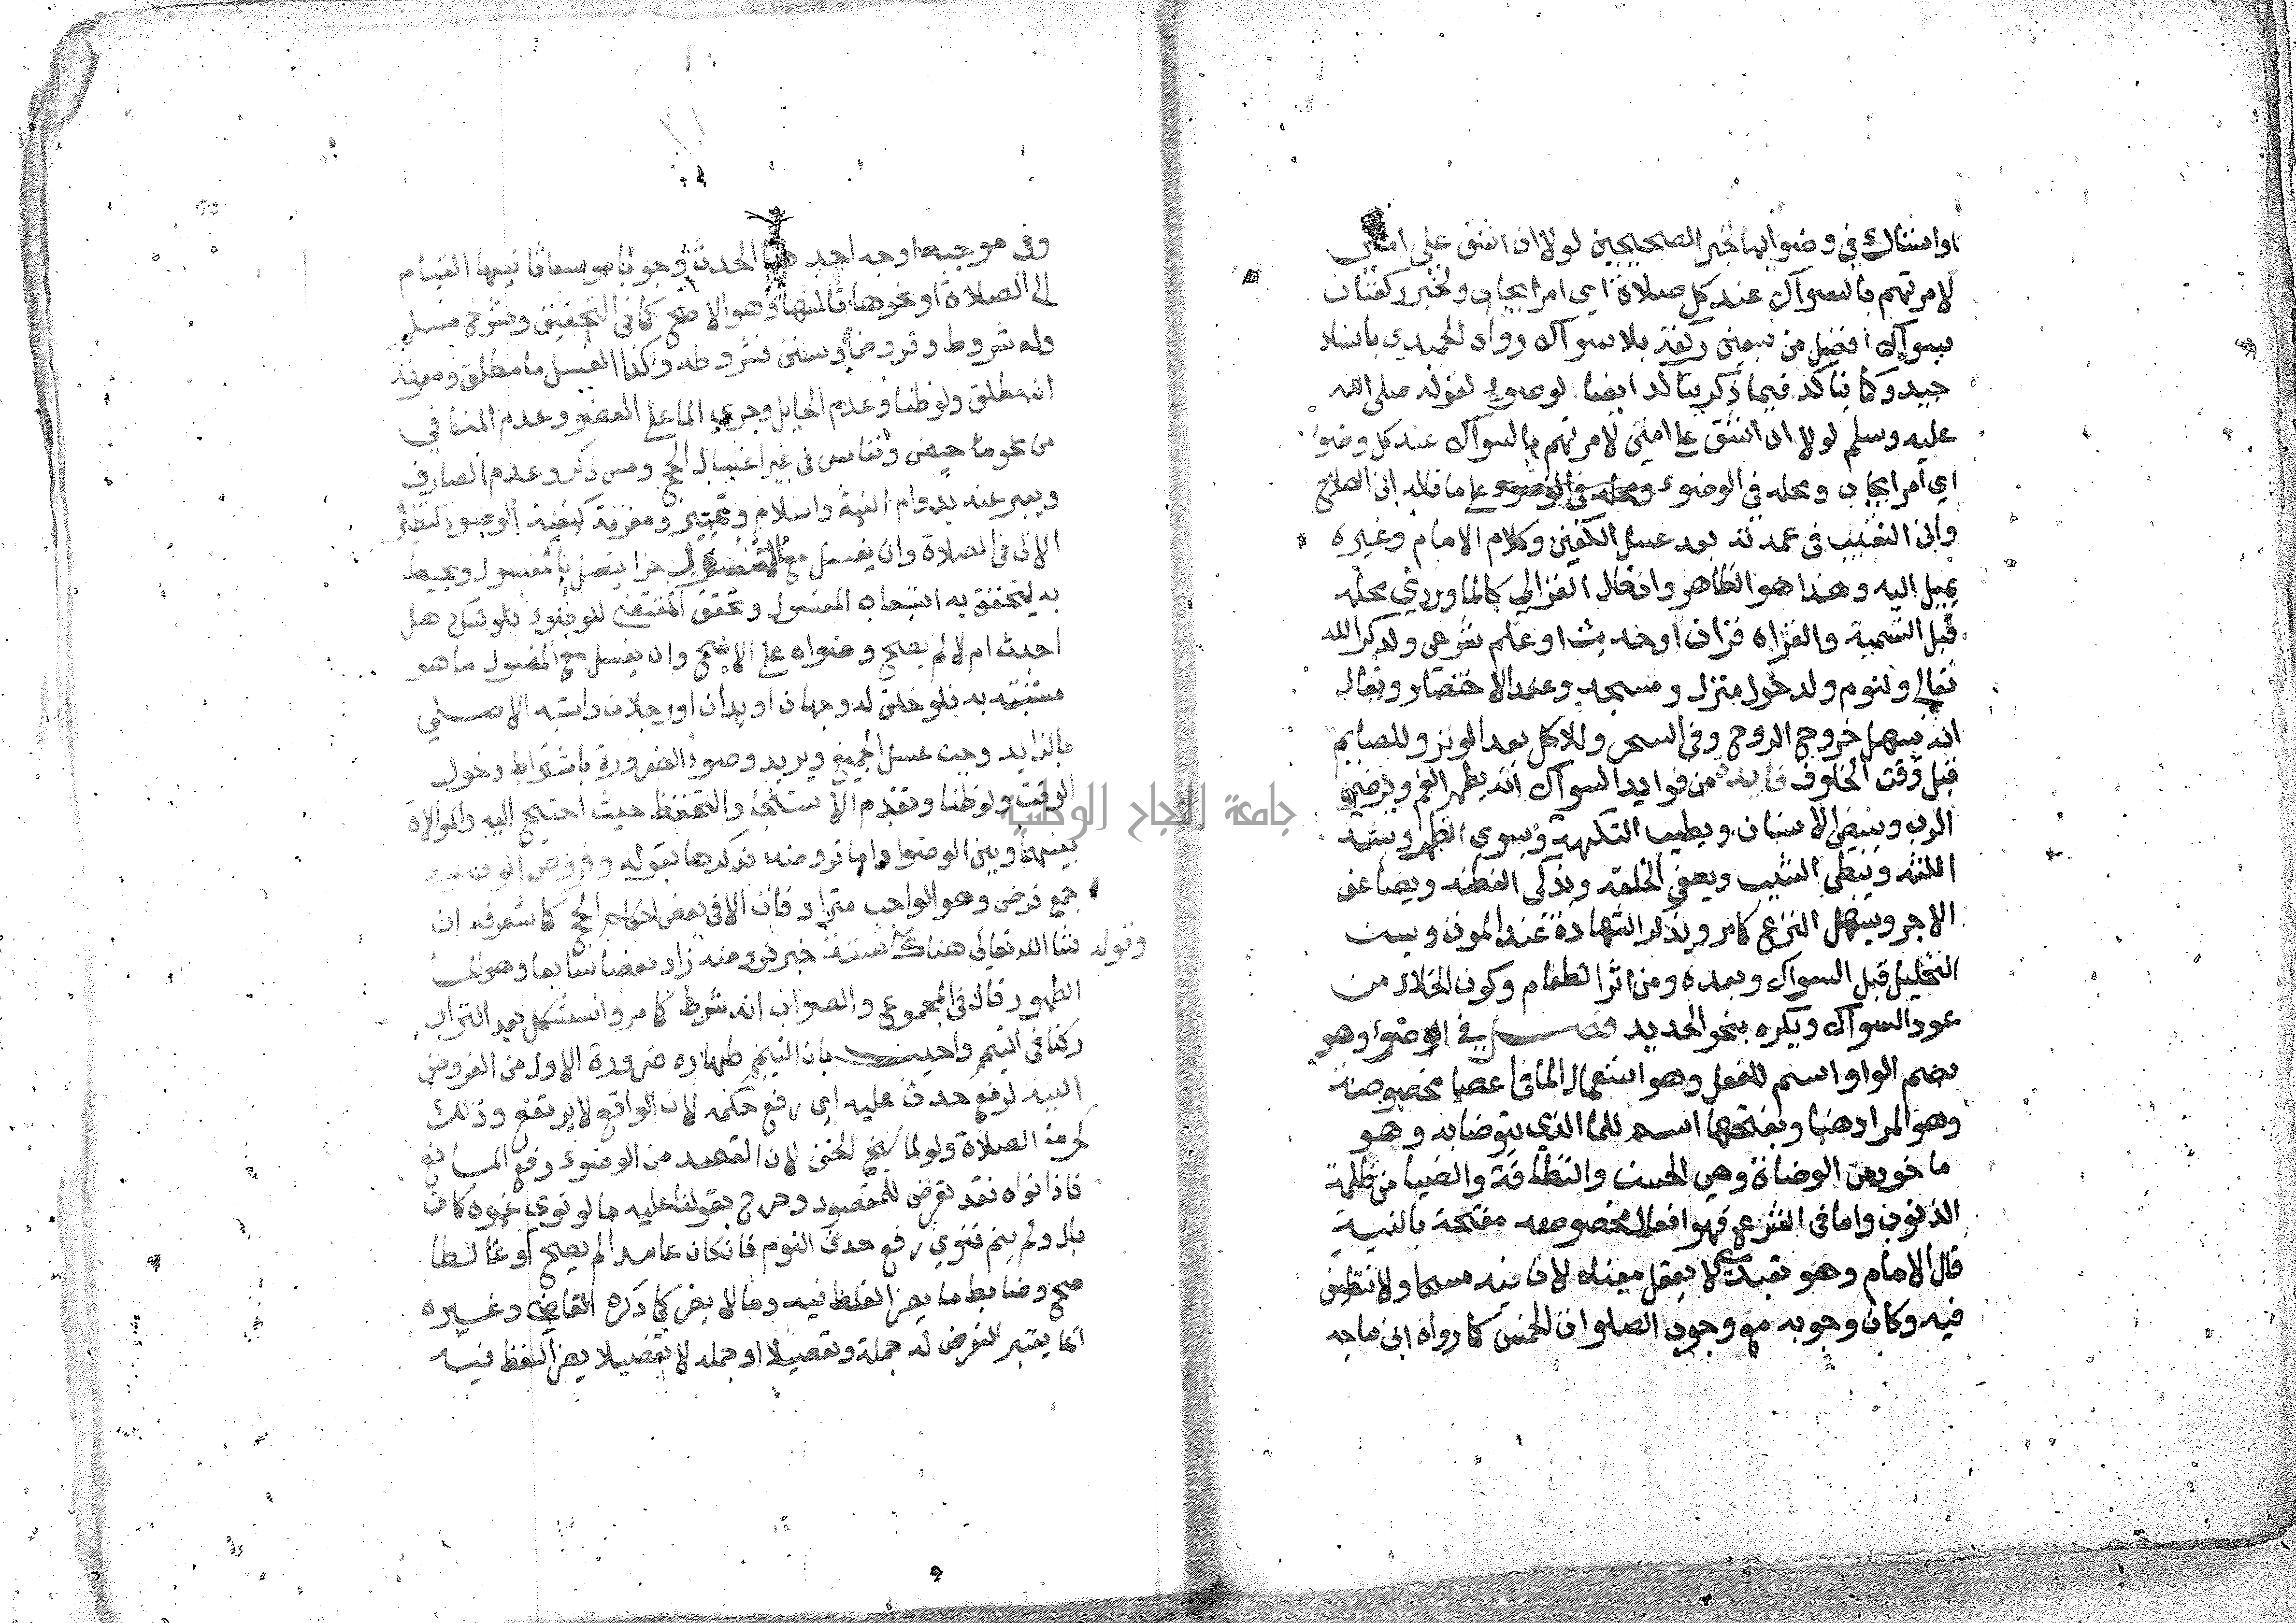 او استاك في وضوئها لخبر الصحيحين لولا ان اشق على امتي
لامرتهم بالسواك عند كل صلاة اي امر ايجاب ولخبر ركعتان
بسواك افضل من سبعين ركعة بلا سواك رواه الحميدي باسناد
جيد وكما يتاكد فيما ذكر يتاكد ايضا لوضوء لقوله صلى الله
عليه وسلم لولا ان اشق على امتي لامرتهم بالسواك عند كل وضوء
اي امر ايجاب ومحله في الوضوء على ما قاله ابن الصلاح
وابن النقيب في عمدته بعد غسل الكفين وكلام الامام وغيره
يميل اليه وهذا هو الظاهر وان قال الغزالي كالماوردي محله
قبل التسمية والقراه قران او حديث او علم شرعي ولذكر الله
تعالى ولنوم ولدخول منزل ومسجد وعند الاحتضار ويقال
انه يسهل خروج الروح وفي السحر وللاكل بعد الوتر وللصايم
قبل وقت الخلوف فايدة من فوايد السواك انه يطهر الفم ويرضي
الرب ويبيض الاسنان ويطيب النكهة ويسوي الظهر ويشد
اللثه ويبطي الشيب ويصفي الخلقه ويذكي الفطنه ويضاعف
الاجر ويسهل النزع كامر ويذكر الشهادة عند الموت ويسن
التخليل قبل السواك وبعده ومن اثر الطعام وكون الخلال من
عود السواك ويكره بنحو الحديد فصل في الوضوا وهو
بضم الواو اسم للفعل وهو استعمال الما في اعضا مخصوصة
وهو المراد هنا وبفتحها اسم للما الذي يتوضا به وهو
ماخوذ من الوضاة وهي الحسن والنظافة والضيا من ظلمة
الذنوب واما في الشرع فهو افعال مخصوصه مفتتحة بالنية
قال الامام وهو تعبدي لا يعقل معناه لان فيه مسحا ولا تنظيف
فيه وكان وجوبه مع وجوب الصلوات الخمس كما رواه ابن ماجه
وفي موجبه اوجه احدها الحدث وجوبا موسعا ثانيها القيام
الى الصلاة او نحوها ثالثها وهو الاصح كما في التحقيق وشرح مسلم
وله شروط وفروض وسنن فشروطه وكذا الغسل ما مطلق ومعرفة
انه مطلق ولو ظنا وعدم الحايل وجري الما على العضو وعدم المنافي
من نحو ما حيض ونفاس في غير اغتسال الحج ومس ذكر وعدم الصارف
ويعبر عنه بدوام النية واسلام وتمييز ومعرفة كيفية الوضوء كنظير
الاتي في الصلاة وان يغسل مع المغسول جزا يتصل بالمغسول ويحيط
به ليتحقق به استيعاب المغسول وتحقق المقتضي للوضوء فلو شك هل
احدث ام لا لم يصح وضواه على الاصح وان يغسل مع المغسول ما هو
مشتبه به فلو خلق له وجهان او يدان او رجلان واشتبه الاصلي
بالزايد وجب غسل الجميع ويزيد وضوء الضرورة باشتراط دخول
الوقت ولو ظنا وتقدم الاستنجا والتحفظ حيث احتيج اليه والموالاة
بينهما وبين الوضوا واما فروضه فذكرها بقوله وفروض الوضوء
جمع فرض وهو الواجب مترادفان الا في بعض احكام الحج كما ستعرفه ان
شا الله تعالى هناك ستة خبر فروضه زاد بعضا سابعا وهو الما
وقوله
الطهور قال في المجموع والصواب انه شرط كامر واستشكل بعد التراب
ركنا في التيمم واجيب بان التيمم طهاره ضرورة الاول من الفروض
النيه لرفع حدث عليه اي رفع حكمه لان الواقع لا يرتفع وذلك
كحرمة الصلاة ولو لماسح الخف لان القصد من الوضوء رفع المانع
فاذا نواه فقد تعرض للمقصود وخرج بقولنا عليه ما لو نوى غيره كان
بال ولم ينم فنوى رفع حدث النوم فان كان عامدا لم يصح او غالطا
صح وضابط ما يضر الغلط فيه وما لا يضر كما ذكره القاضي وغيره
انما يعتبر التعرض له جملة وتفصيلا او جمله لا تفصيلا يضر الغلط فيه
جامعة النجاح الوطنية